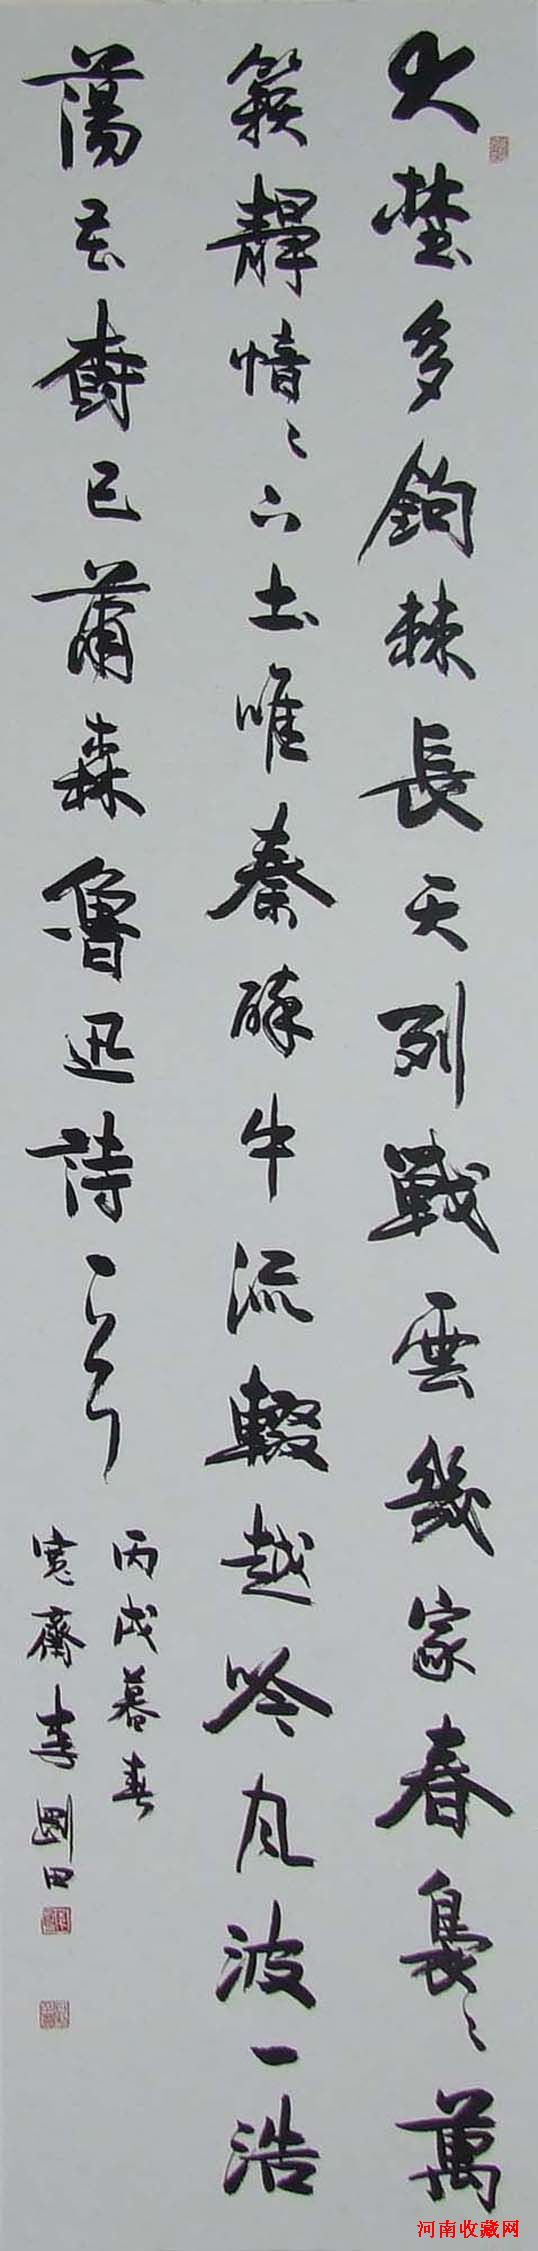 大埜多鉤棘長天列戰雲幾家春裊〻萬
籟靜愔〻下土唯秦醉中流輟越吟風波一浩
蕩花樹已蕭森魯迅詩一首
丙戌暮春
寬齋李剛田
河南收藏网